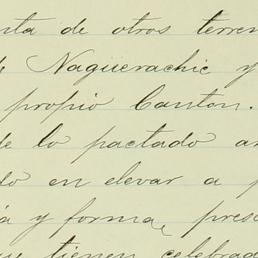 nta de otros terren
e Naguerachic y
propio Canton.
de lo pactado an
do en elevar a p
ia y forma, pres
tienen celebrad